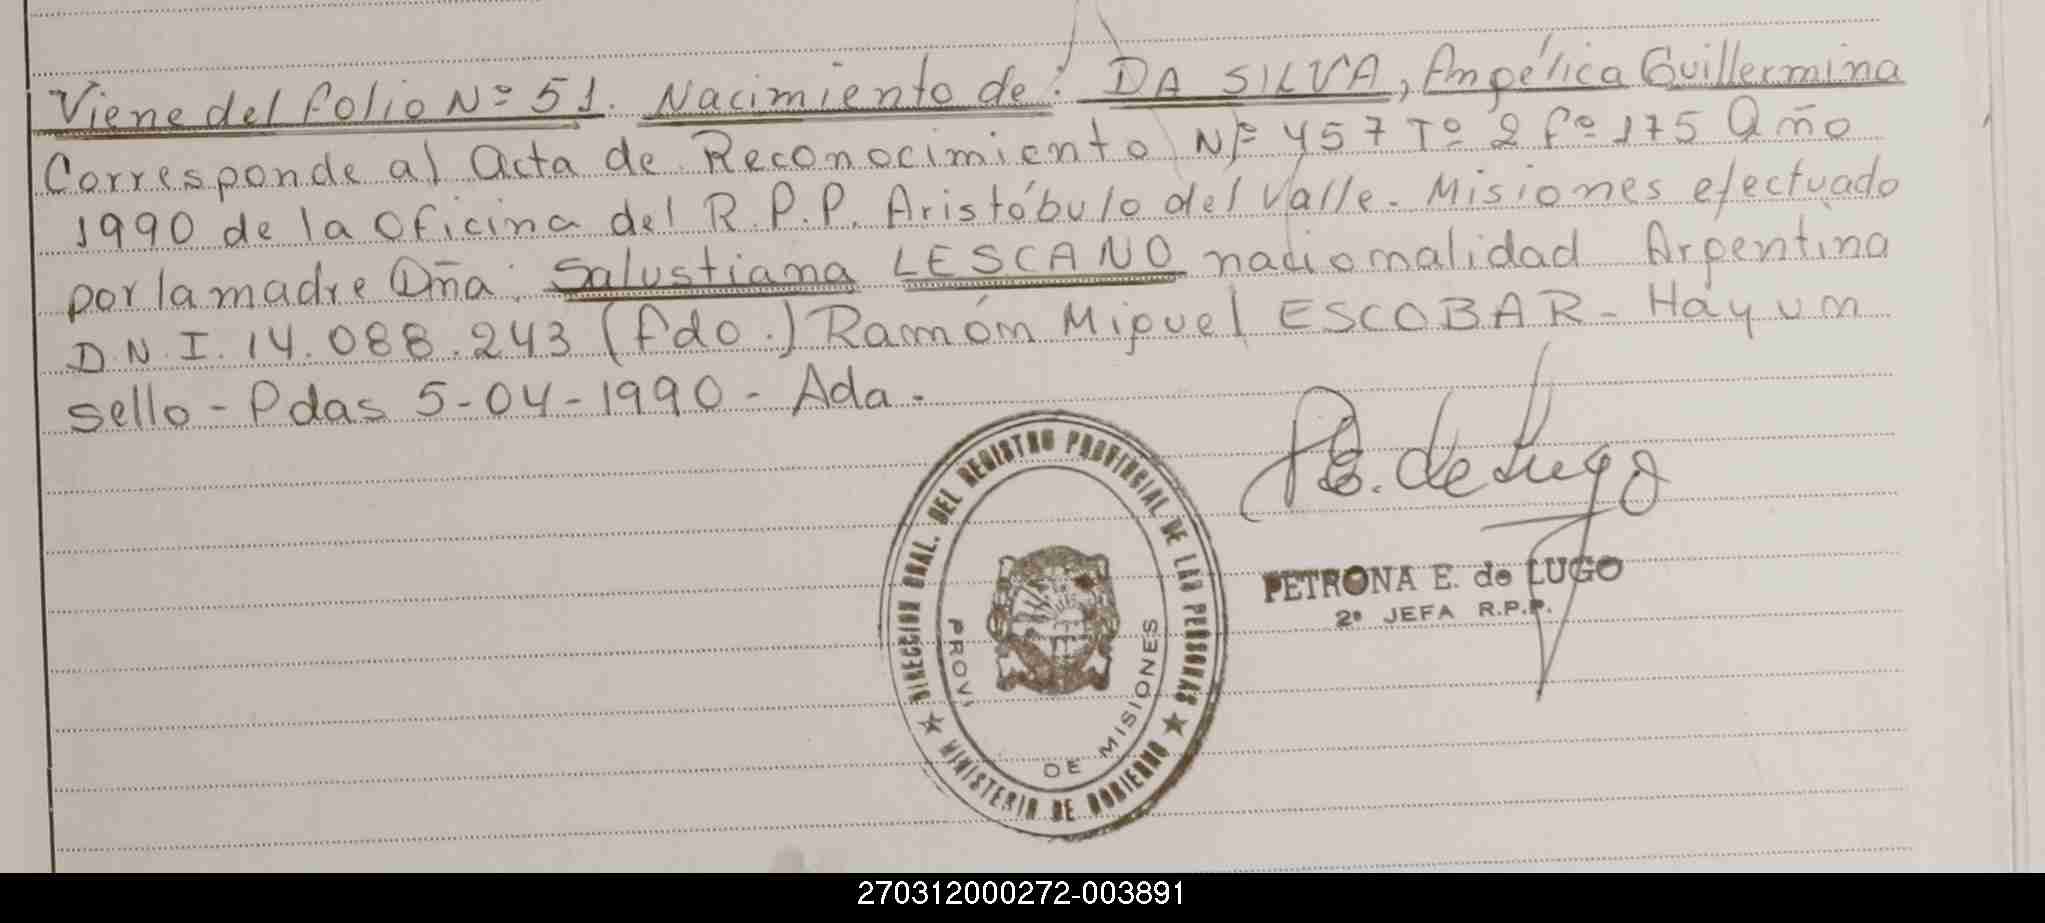 Viene del folio Nº 51. Nacimiento de: DA SILVA, Angélica Guillermina
Corresponde al Acta de Reconocimiento Nº 457 Tº 2 fº 175 Año
1990 de la oficina del R.P.P. Aristóbulo del Valle. Misiones efectuado
por la madre Dña: Salustiana LESCANO nacionalidad Argentina
D.N.I. 14.088.243 (fdo.) Ramón Miguel ESCOBAR - Hay un
sello - Pdas 5-04-1990 - Ada.
DIRECCION GRAL. DEL REGISTRO PROVINCIAL DE LAS PERSONAS
★ MINISTERIO DE GOBIERNO ★
PROVI
DE MISIONES
P E. de Lugo
PETRONA E. de LUGO
2ª JEFA R.P.P.
270312000272-003891